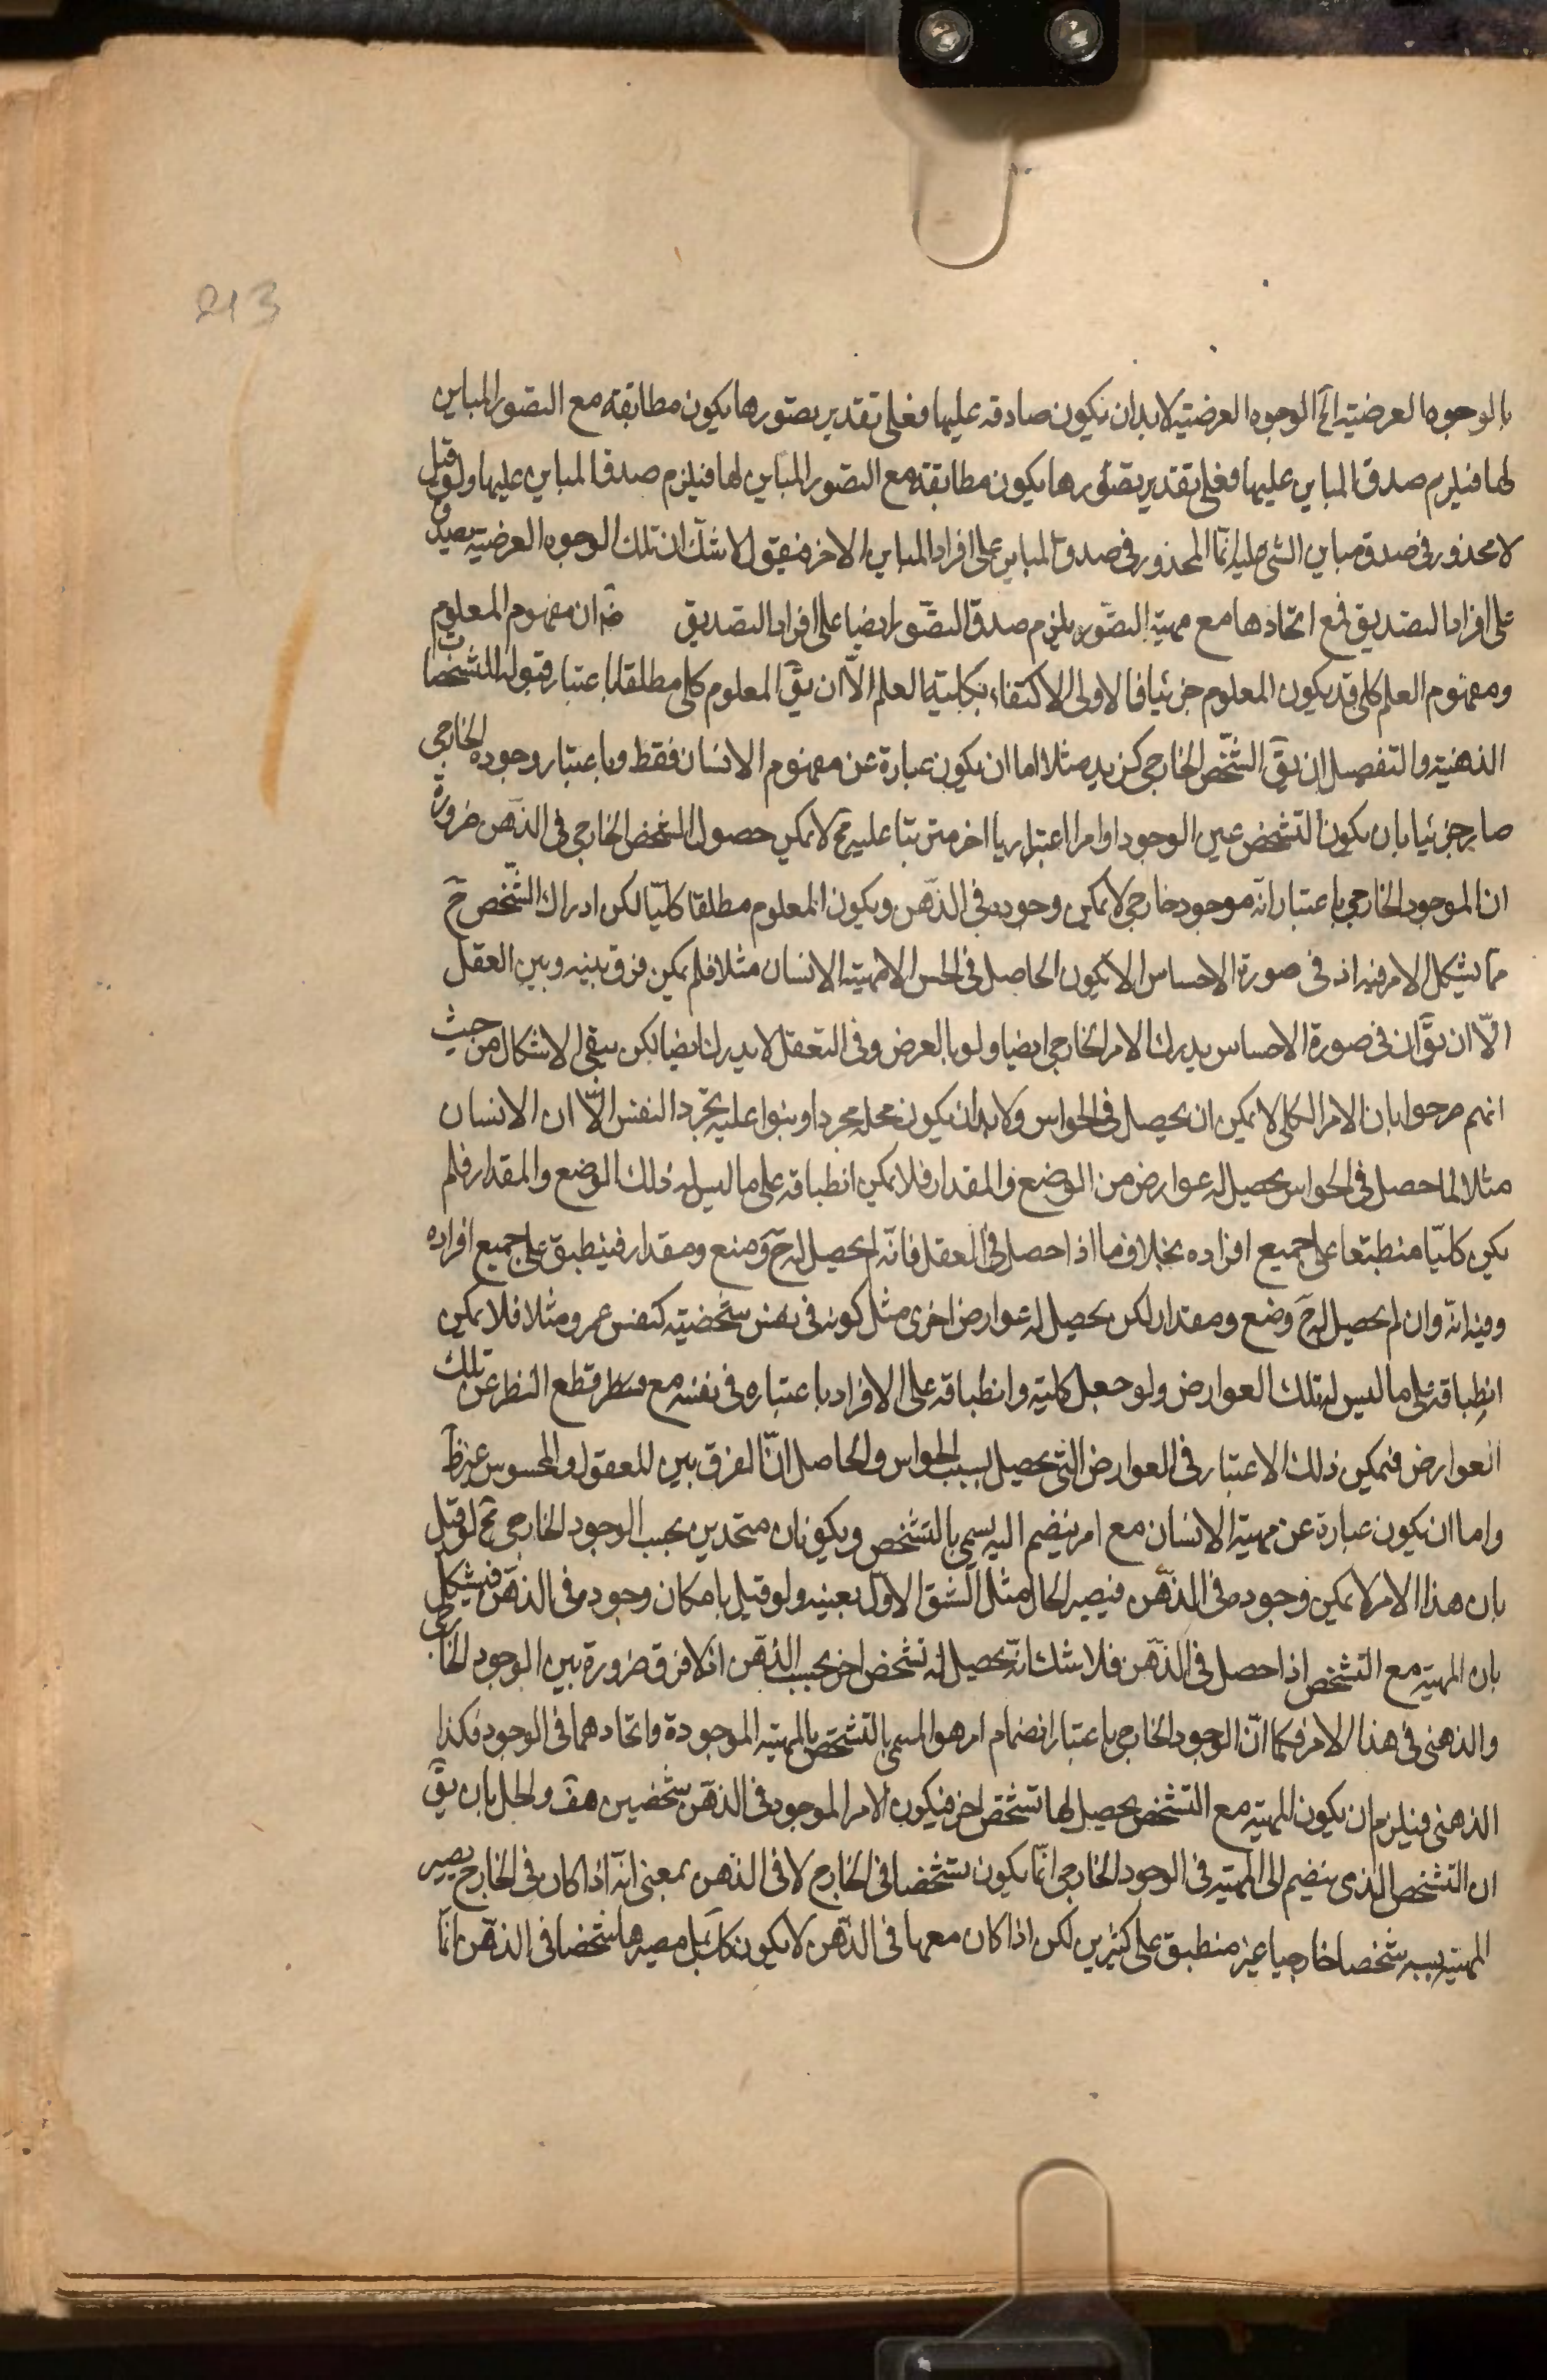 213
بالوجوه العرضية الخ الوجوه العرضية لابد ان تكون صادقه عليها فعلى تقدير تصورها يكون مطابقة مع التصور المباين
لها فيلزم صدق المباين عليها فعلى تقدير تصورها يكون مطابقة مع التصور المباين لها فيلزم صدق المباين عليها ولو قيل
لا محذور فى صدق مباين الشى عليه انما المحذور فى صدق المباين على افراد المباين الاخر فيقول لا شك ان تلك الوجوه العرضية يصدق
على افراد التصديق فمع اتحادها مع مهية التصور يلزم صدق التصور ايضا على افراد التصديق ان مفهوم المعلوم
ومفهوم العلم كلى قد يكون المعلوم جزئيا فالاولى الاكتفاء بكلية العلم الا ان يق المعلوم كلى مطلقا باعتبار قبوله المشخصات
الذهنية والتفصيل ان يق الشخص الخارجى كزيد مثلا اما ان يكون عبارة عن مفهوم الانسان فقط وباعتبار وجوده الخارجى
صار جزئيا بان يكون التشخص عين الوجود او امرا اعتباريا اخر مترتبا عليه فح لا يمكن حصول الشخص الخارجى فى الذهن ضرورة
ان الموجود الخارجى باعتبار انه موجود خارجى لا يمكن وجوده فى الذهن ويكون المعلوم مطلقا كليا لكن ادراك الشخص ح
مما يشكل الامر فيه اذ فى صورة الاحساس الا يكون الحاصل فى الحس الا مهية الانسان مثلا فلم يكن فرق بينه وبين العقل
الا ان يق ان فى صورة الاحساس يدرك الامر الخارجى ايضا ولو بالعرض وفى التعقل لا يدرك ايضا لكن يبقى الاشكال من حيث
انهم صرحوا بان الامر الكلى لا يمكن ان يحصل فى الحواس ولابد ان يكون محله مجردا وبنوا عليه تجرد النفس الا ان الانسان
مثلا لما حصل فى الحواس يحصل له عوارض من الوضع والمقدار فلا يمكن انطباقه على ما ليس له ذلك الوضع والمقدار فلم
يكن كليا منطبقا على جميع افراده بخلاف ما اذا حصل فى العقل فانه لم يحصل له ح وضع ومقدار فينطبق على جميع افراده
وفيه انه وان لم يحصل له ح وضع ومقدار لكن يحصل له عوارض اخرى مثل كونه فى نفس شخصية كنفس عمرو مثلا فلا يمكن
انطباقه على ما ليس له تلك العوارض ولو جعل كليته وانطباقه على الافراد باعتباره فى نفسه مع قطع النظر عن تلك
العوارض فيمكن ذلك الاعتبار فى العوارض التى يحصل بسبب الحواس والحاصل ان الفرق بين المعقول والمحسوس غير ظ
واما ان يكون عبارة عن مهية الانسان مع امر ينضم اليه يسمى بالتشخص ويكونان متحدين بحسب الوجود الخارجى فح لو قيل
بان هذا الامر لا يمكن وجوده فى الذهن فيصير الحال مثل الشق الاول بعينه ولو قيل بامكان وجوده فى الذهن فيشكل
بان المهية مع التشخص اذا حصل فى الذهن فلا شك انه يحصل له تشخص اخر بحسب الذهن اذ لا فرق ضرورة بين الوجود الخارجى
والذهنى فى هذا الامر فكما ان الوجود الخارجى باعتبار انضمام امر هو المسمى بالتشخص بالمهية الموجودة واتحادهما فى الوجود فكذا
الذهنى فيلزم ان يكون للمهية مع التشخص يحصل لها تشخص اخر فيكون الامر الموجود فى الذهن شخصين هف والحل بان يق
ان التشخص الذى ينضم الى المهية فى الوجود الخارجى انما يكون تشخصا فى الخارج لا فى الذهن بمعنى انه اذا كان فى الخارج يصير
المهية بسببه شخصا خارجيا غير منطبق على كثيرين لكن اذا كان معها فى الذهن لا يكون كك بل مصيرها شخصا فى الذهن انما